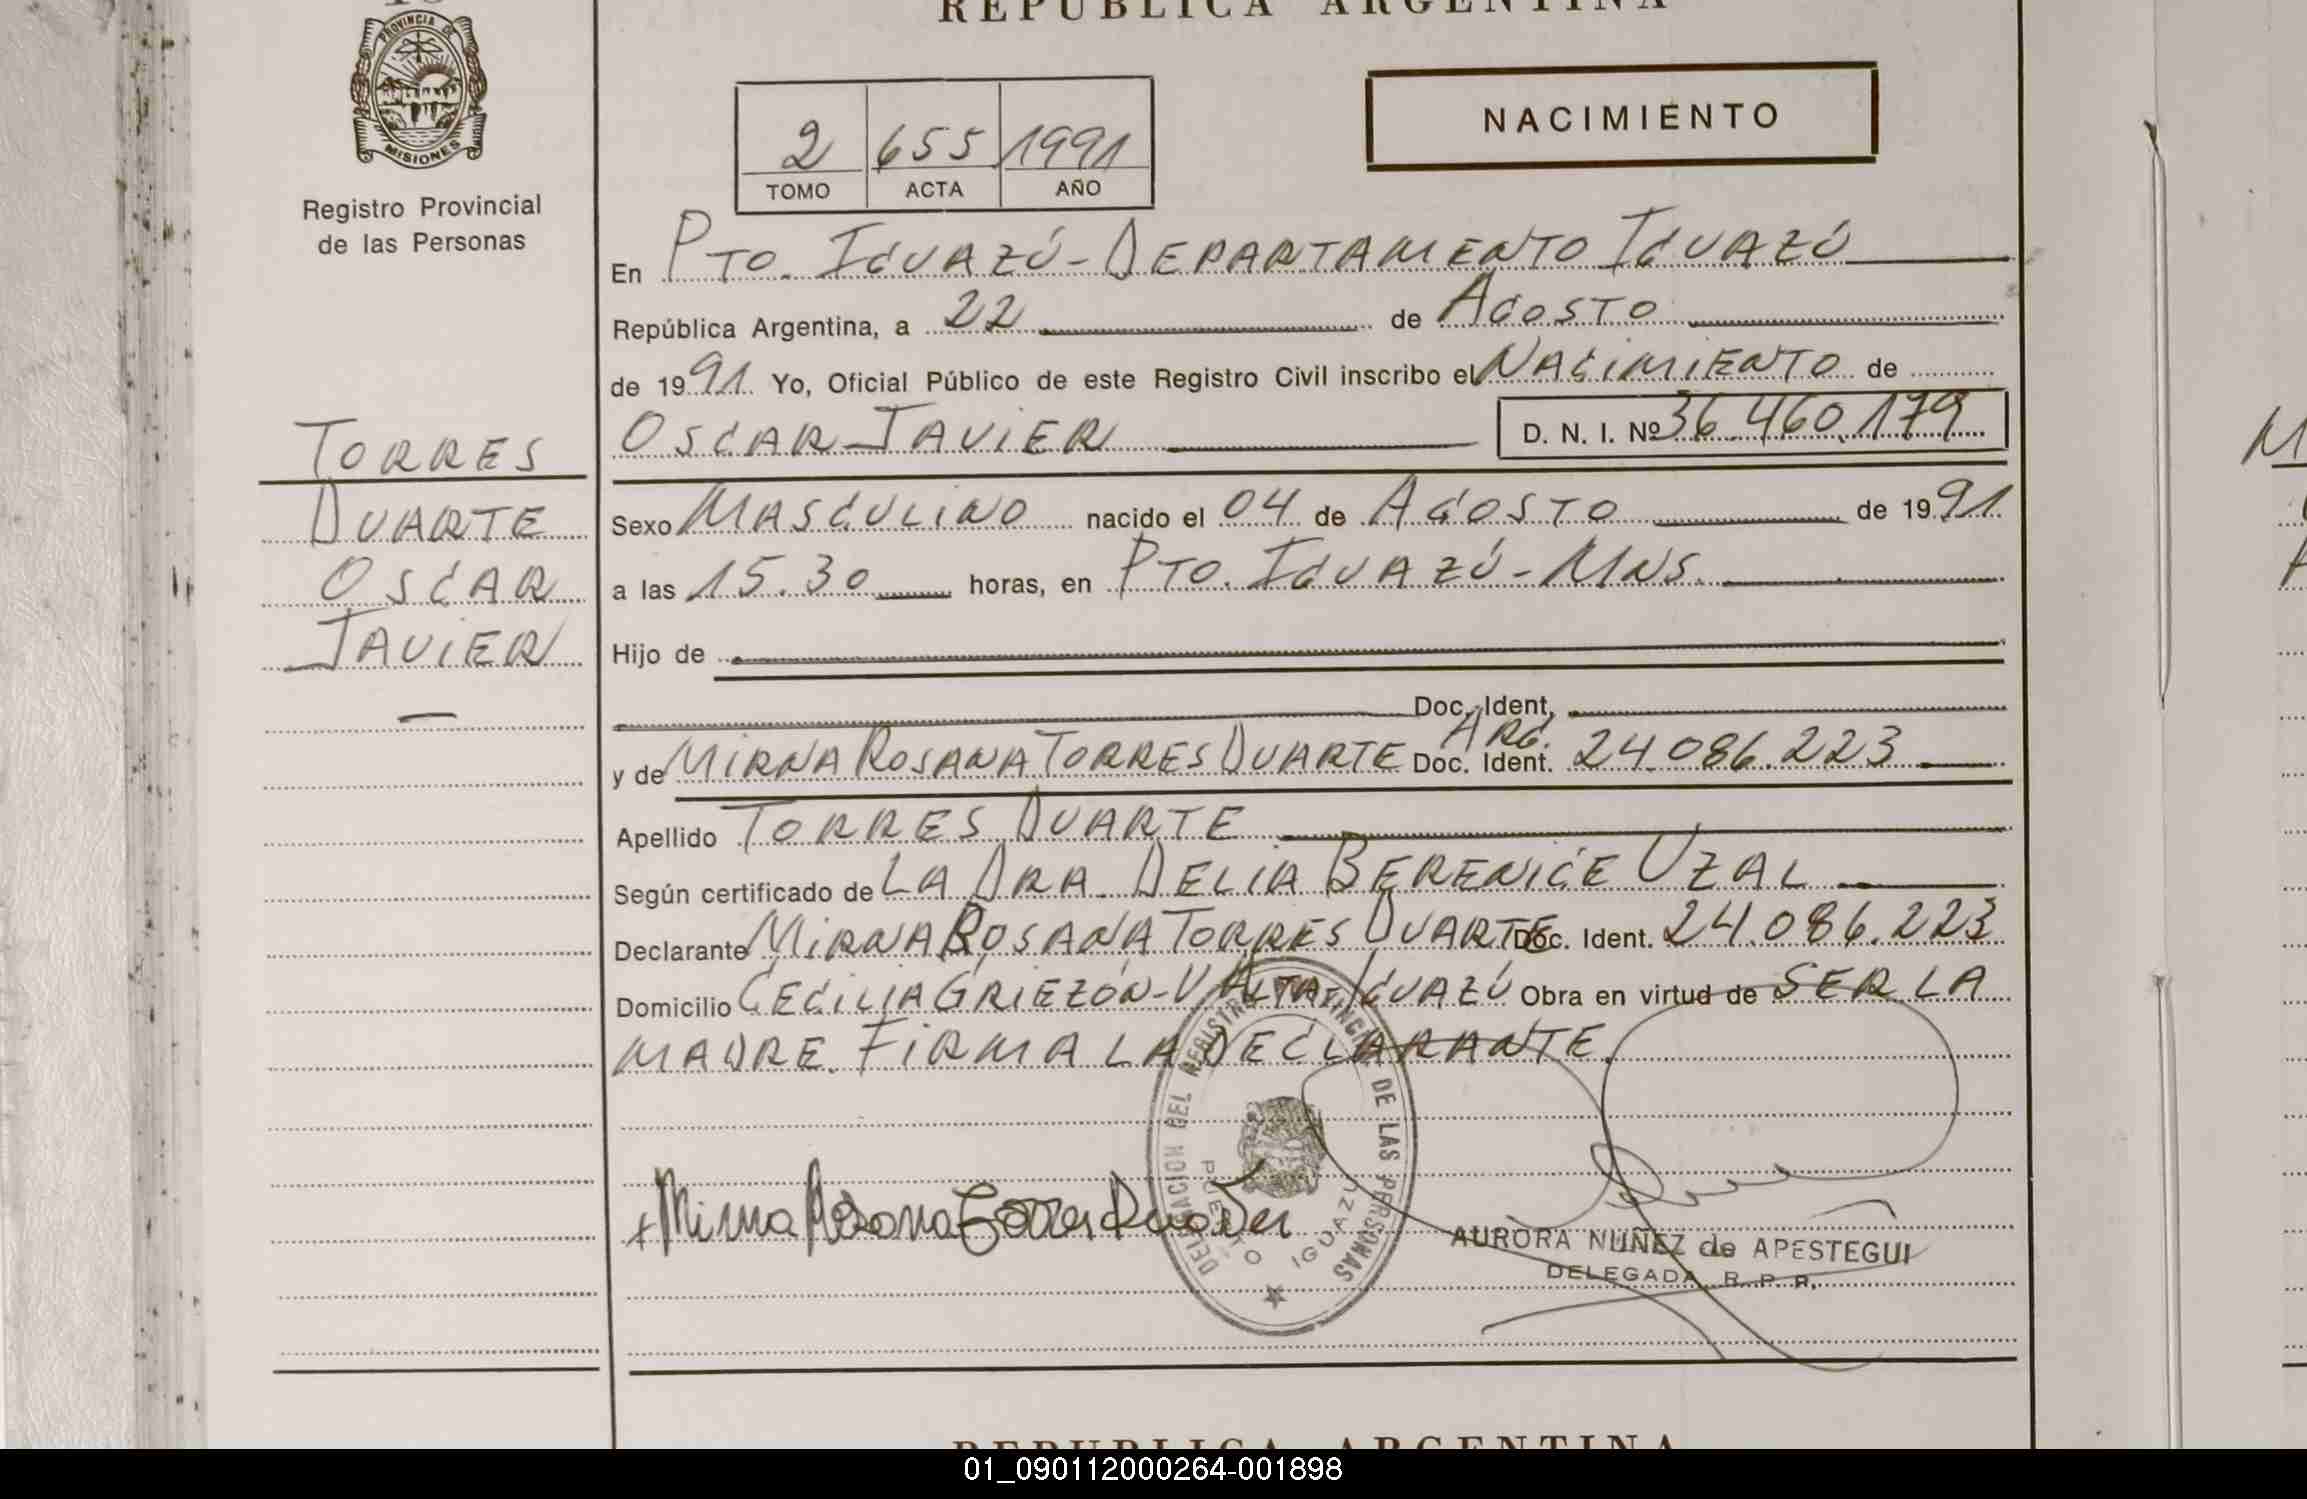 REPUBLICA ARGENTINA
PROVINCIA DE
MISIONES
Registro Provincial
de las Personas
NACIMIENTO
2 655 1991
TOMO ACTA AÑO
En PTO. IGUAZÚ - DEPARTAMENTO IGUAZÚ
República Argentina, a 22 de AGOSTO
de 1991. Yo, Oficial Público de este Registro Civil inscribo el NACIMIENTO de
OSCAR JAVIER D. N. I. Nº 36.460.179
TORRES
DUARTE
OSCAR
JAVIER
Sexo MASCULINO nacido el 04 de AGOSTO de 1991
a las 15.30 horas, en PTO. IGUAZÚ - MNS.
Hijo de
Doc. Ident.
y de MIRNA ROSANA TORRES DUARTE Doc. Ident. ARG. 24.086.223
Apellido TORRES DUARTE
Según certificado de LA DRA. DELIA BERENICE UZAL
Declarante MIRNA ROSANA TORRES DUARTE Doc. Ident. 24.086.223
Domicilio CECILIA GRIEZÓN - V. ALTA - IGUAZÚ Obra en virtud de SER LA
MADRE. FIRMA LA DECLARANTE.
DELEGACION DEL REGISTRO PROVINCIAL DE LAS PERSONAS
PUERTO IGUAZU
Mirna Rosana Torres Duarte
AURORA NUÑEZ de APESTEGUI
DELEGADA R. P. P.
REPUBLICA ARGENTINA
01_090112000264-001898